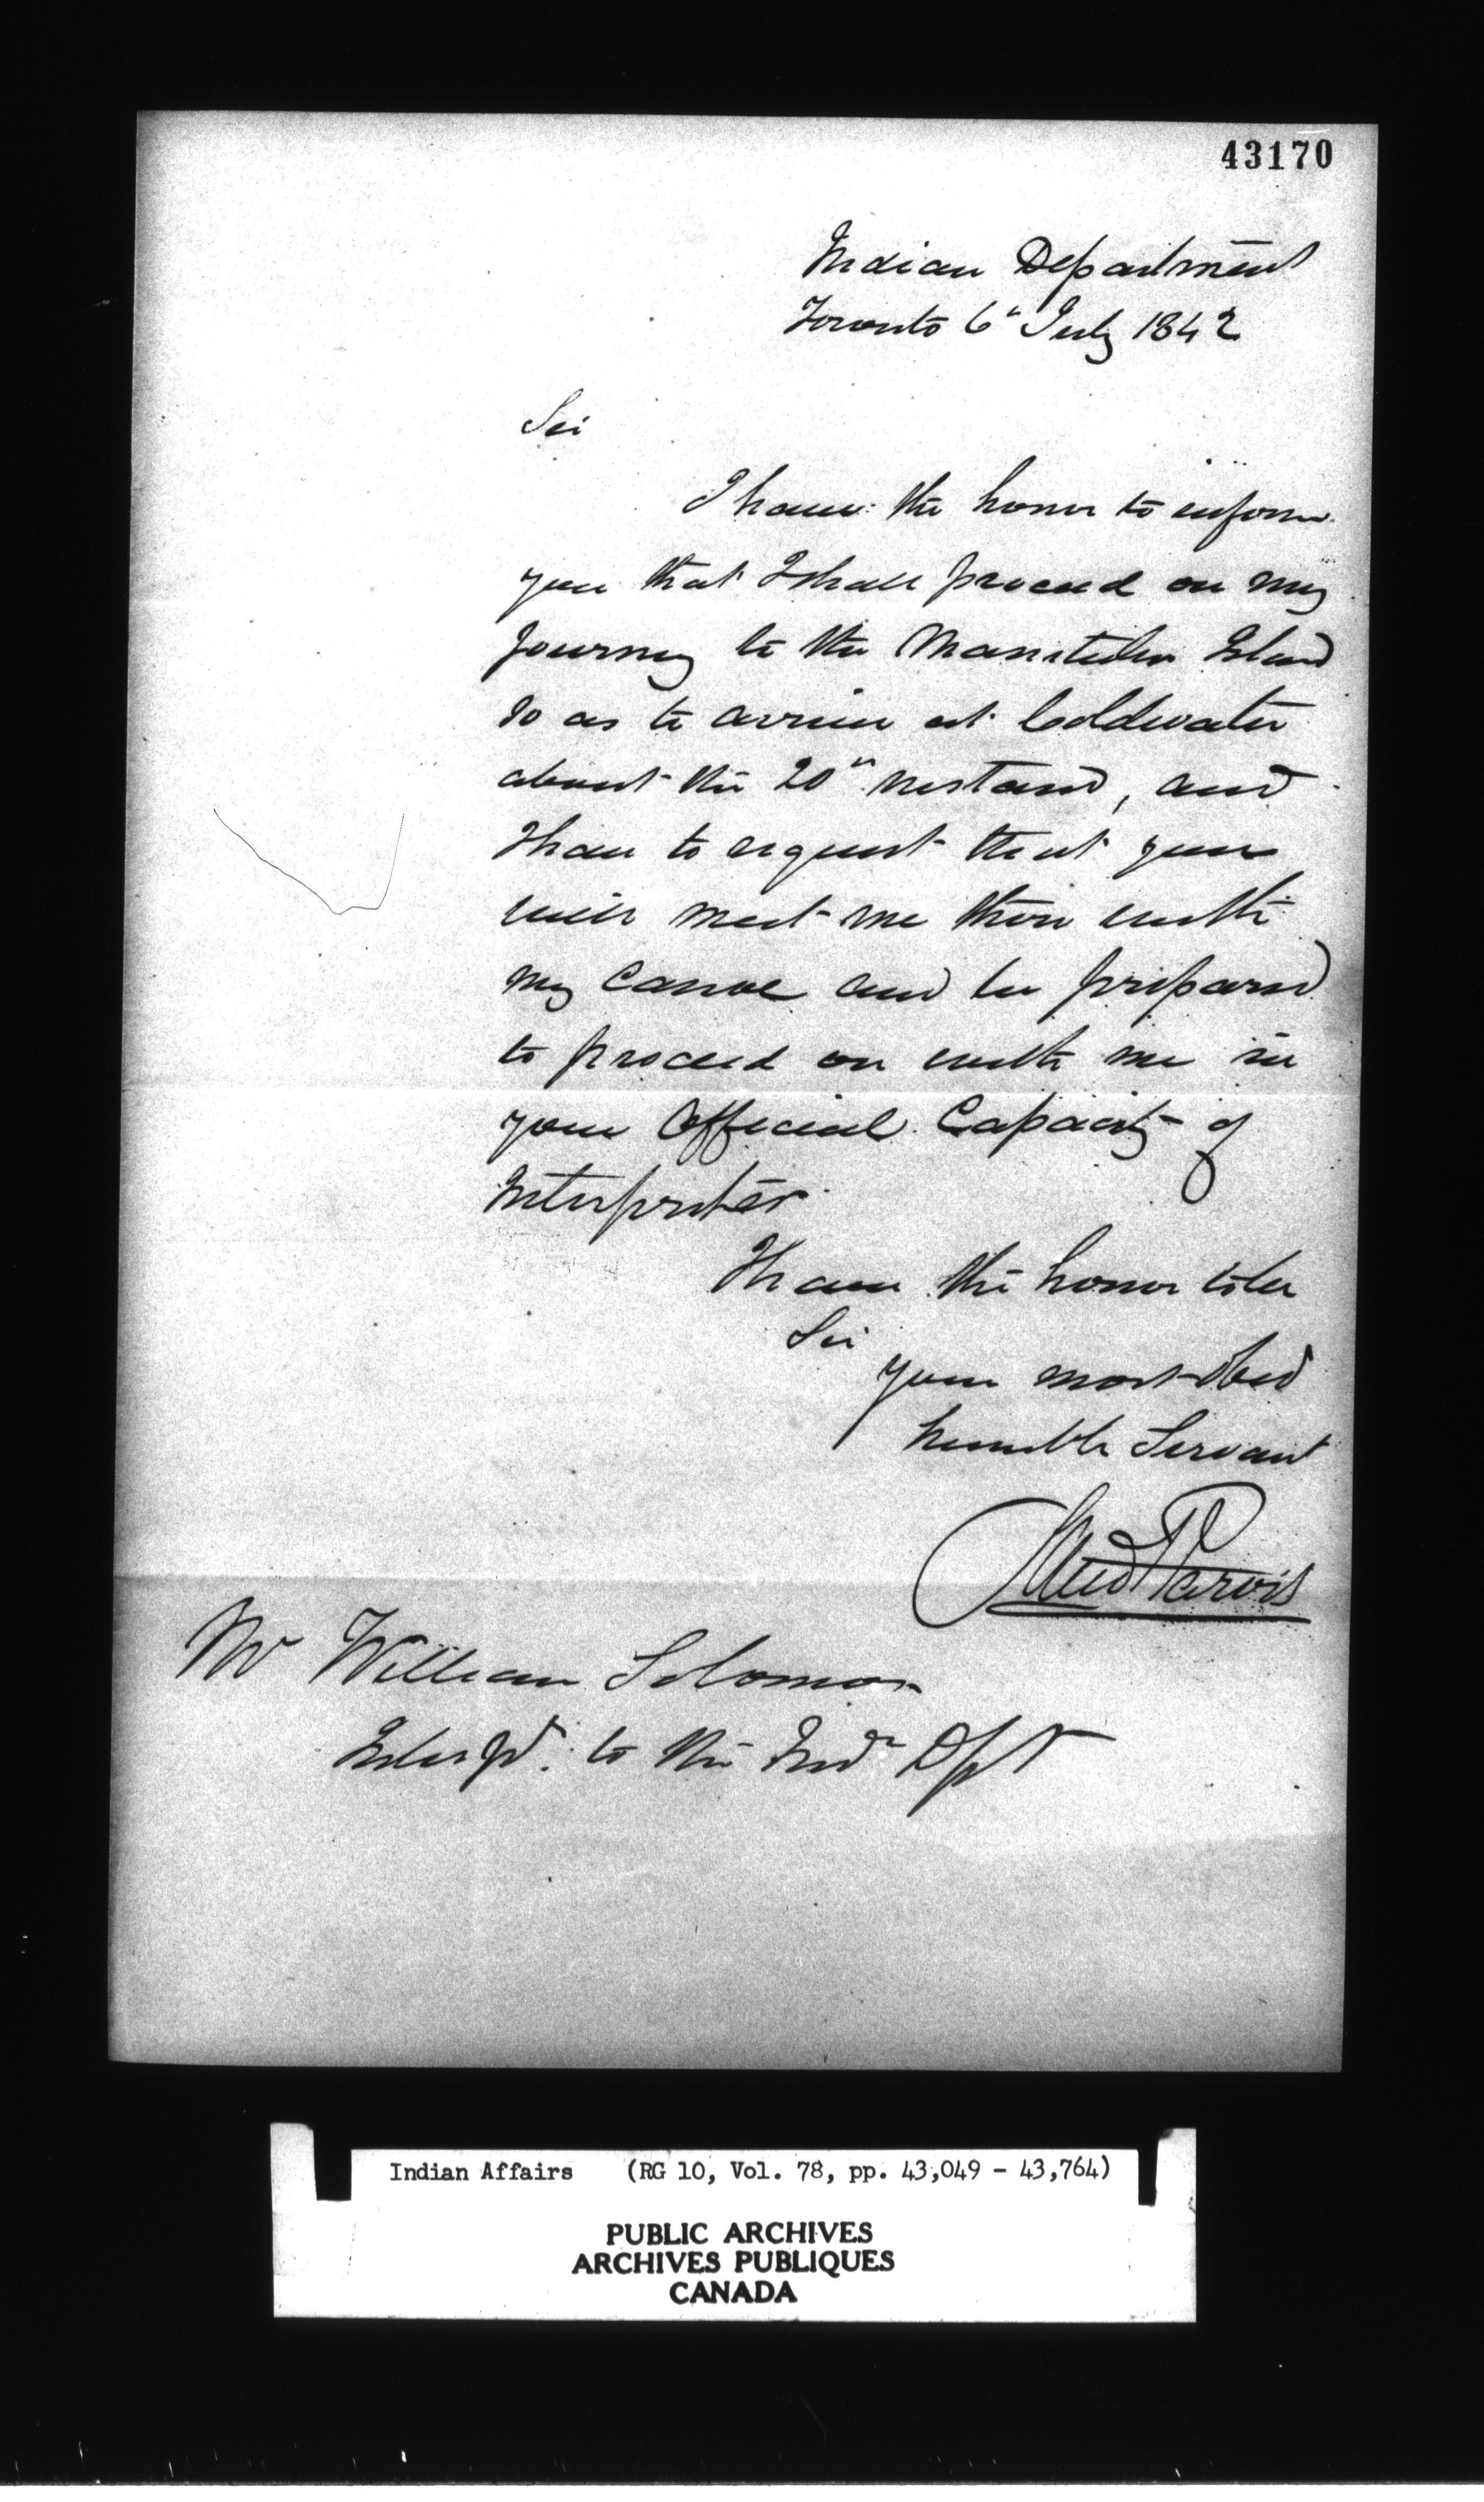 43170
Indian Department
Toronto 6th July 1842
Sir
I have the honor to inform
you that I shall proceed on my
Journey to the Manitulin Island
so as to arrive at Coldwater
about the 20th instand, and
I have to request that you
will meet me there with
my Canoe and be prepared
to proceed on with me in
your Official Capacity of
Interpreter
I have the honor to be
Sir
your most obed
humble Servant
Jarvis
Mr William Solomon
to the Indn Dpt
Indian Affairs (RG 10, Vol. 78, pp. 43,049 - 43,764)
PUBLIC ARCHIVES
ARCHIVES PUBLIQUES
CANADA